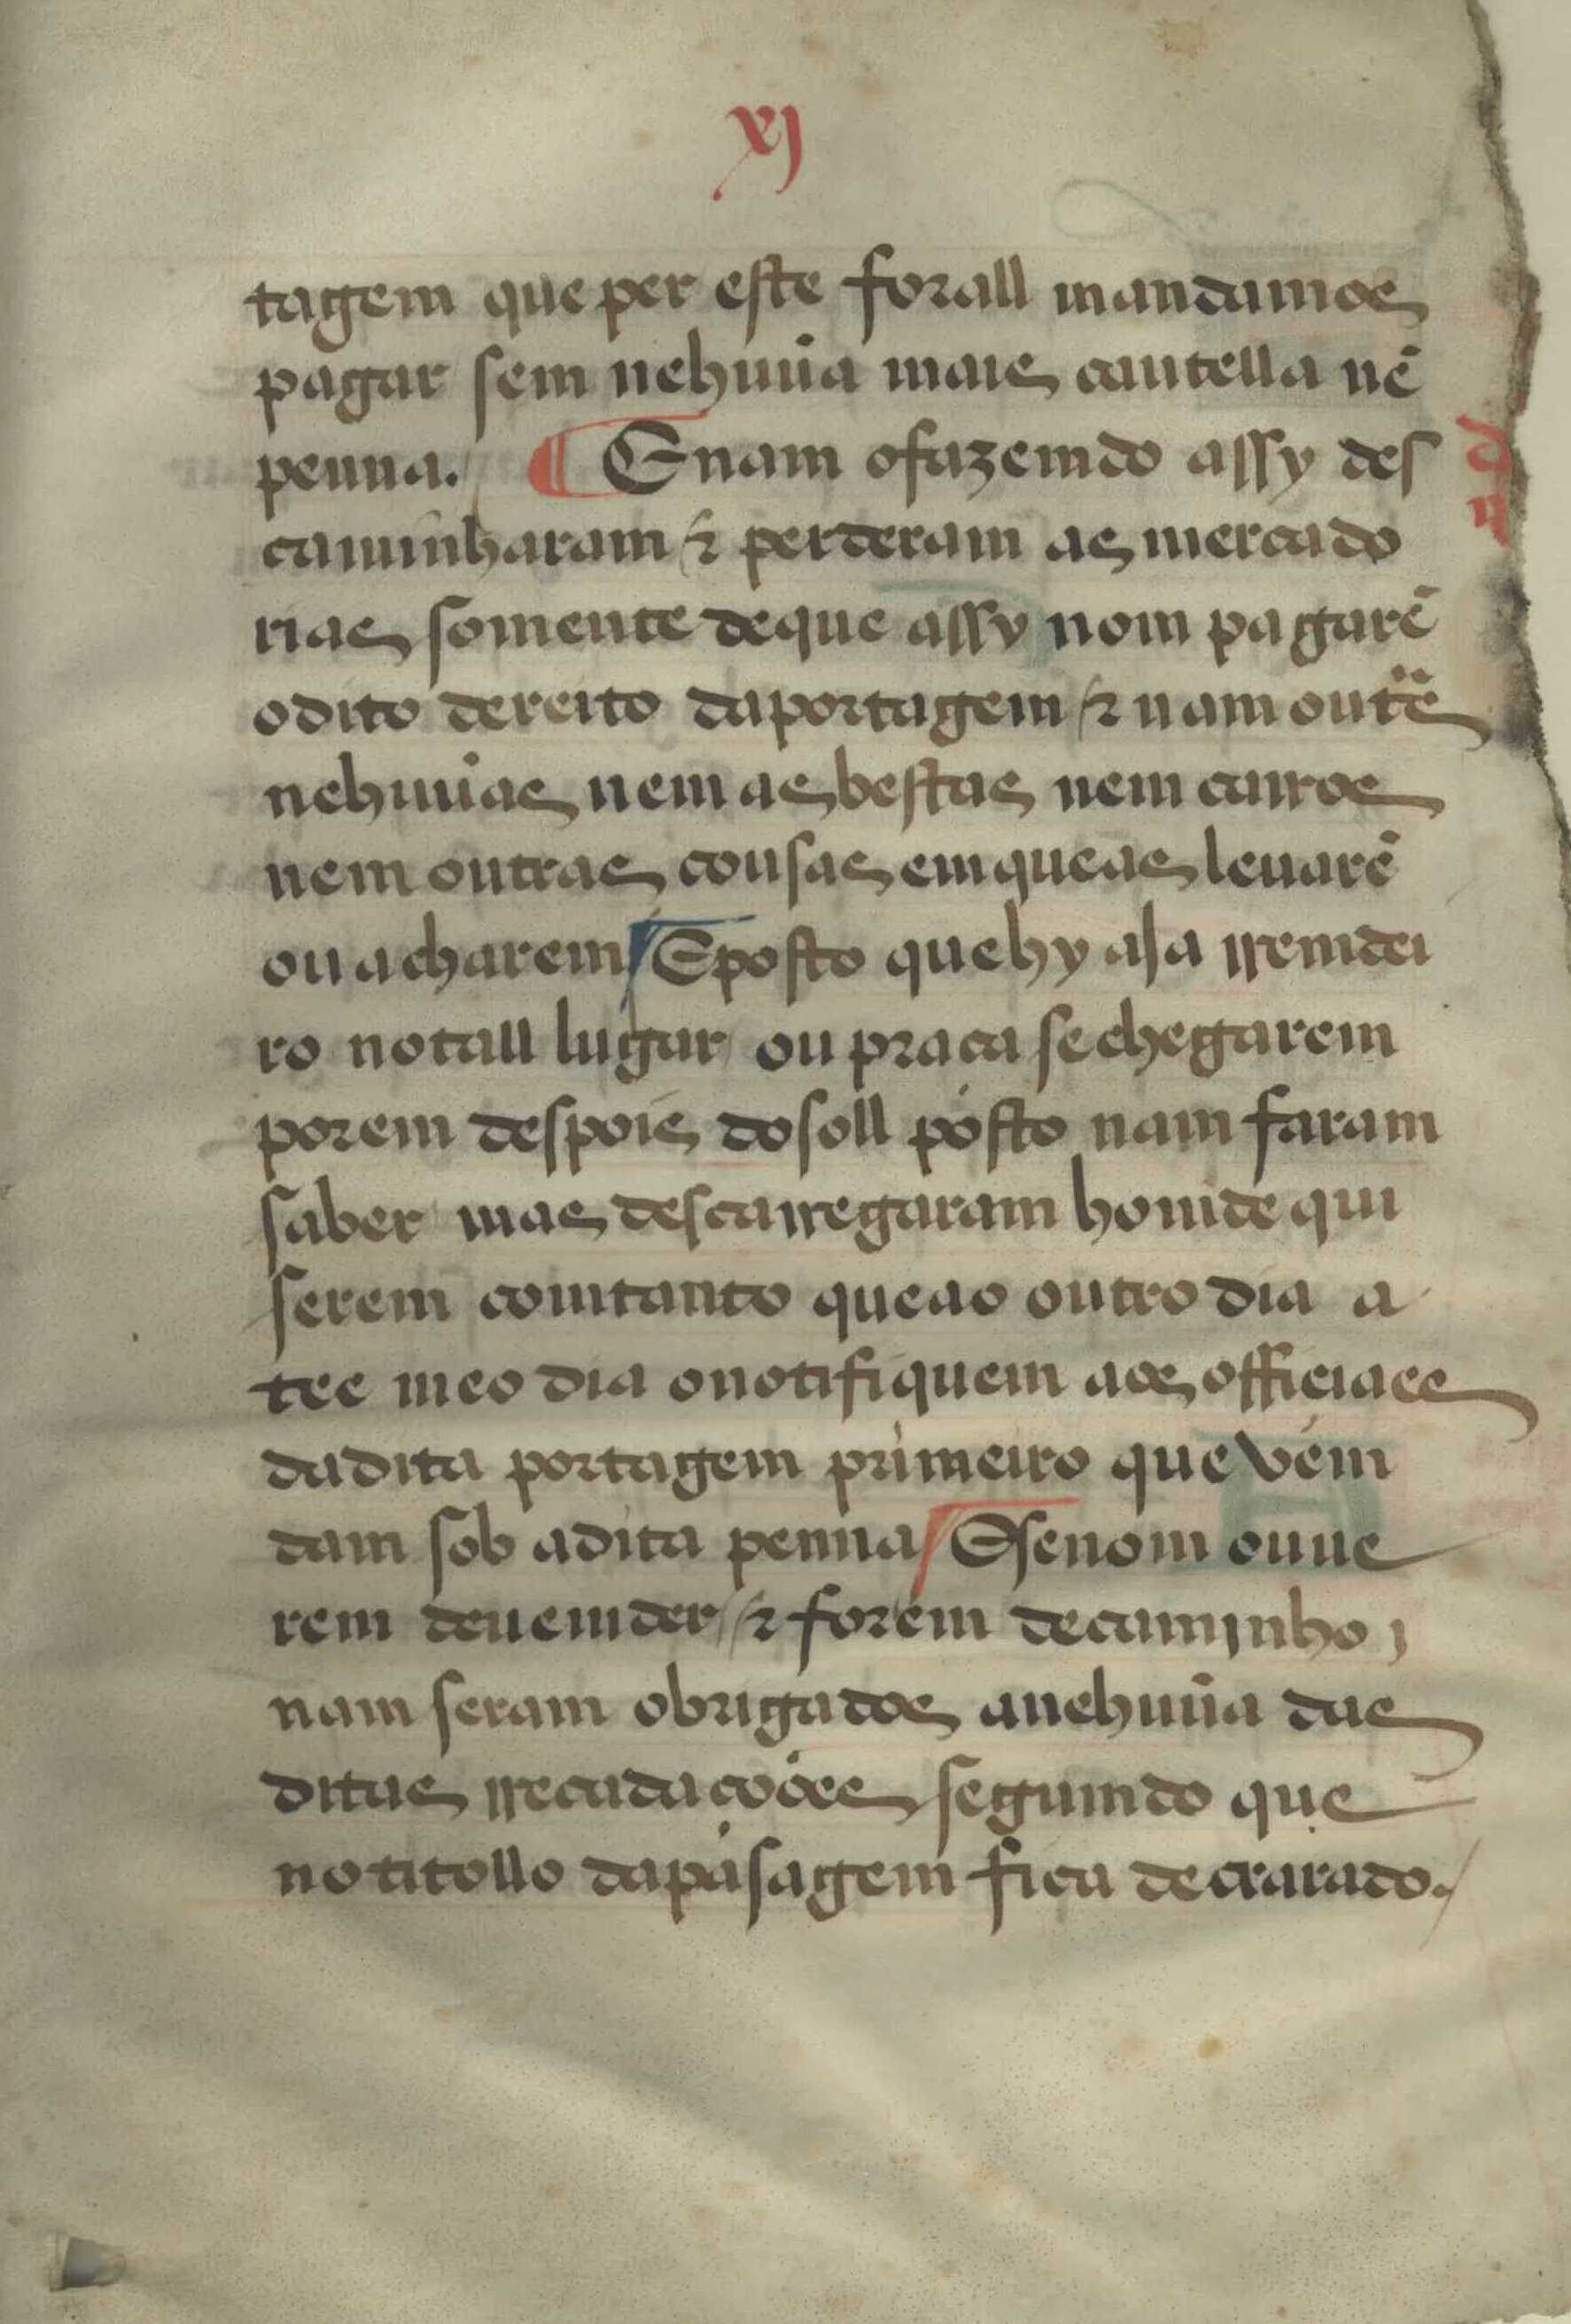 xj
tagem que per este forall mandamos
pagar sem nehuũa mais cautella nẽ
penna. ¶ E nam o fazemdo assy des
caminharam ⁊ perderam as mercado
rias somente de que assy nom pagarẽ
o dito dereito da portagem ⁊ nam outrẽ
nehuũas nem as bestas nem carros
nem outras cousas em que as leuarẽ
ou acharem / E posto que hy aja rremdei
ro no tall lugar ou praca se chegarem
porem despois do soll posto nam faram
saber mas descarregaram homde qui
serem comtanto que ao outro dia a
tee meo dia o notifiquem aos officiaes
da dita portagem primeiro que vem
dam sob a dita penna / E se nom ouue
rem de uemder / ⁊ forem de caminho j
nam seram obrigados a nehuũa das
ditas rrecadacoões segumdo que
no titollo da pasagem fica decrarado./